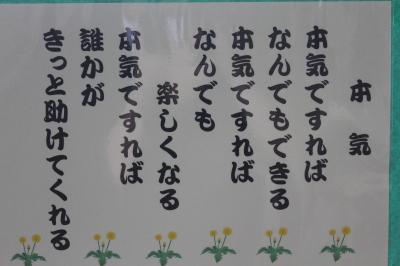 本 気
本気ですれば
なんでもできる
本気ですれば
なんでも
楽しくなる
本気ですれば
誰かが
きっと助けてくれる